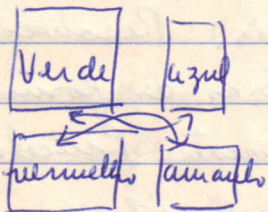 Verde azul
vermelho amarelo